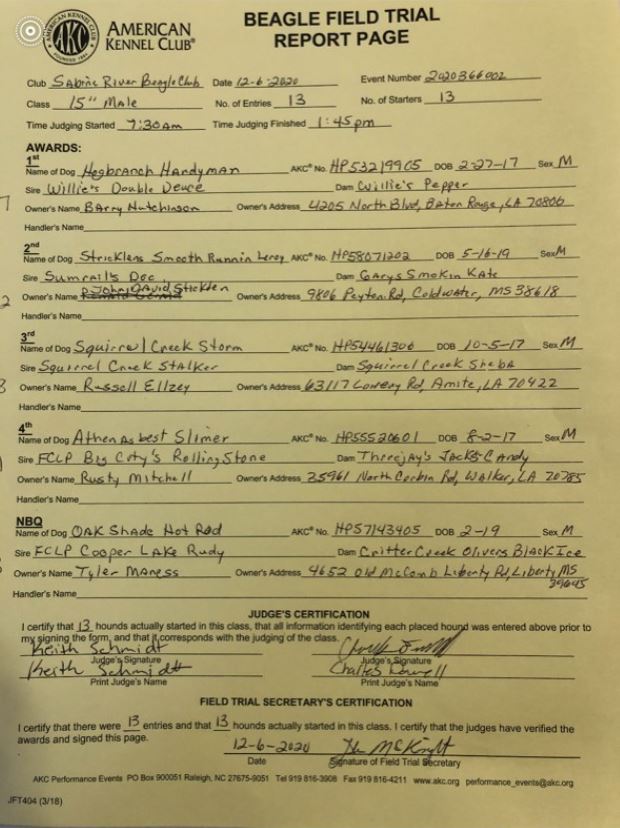 AMERICAN KENNEL CLUB
AKC
FOUNDED 1884
AMERICAN
KENNEL CLUB®
BEAGLE FIELD TRIAL
REPORT PAGE
Club Sabine River Beagle Club Date 12-6-2020 Event Number 2020366002
Class 15" Male No. of Entries 13 No. of Starters 13
Time Judging Started 7:30am Time Judging Finished 1:45pm
AWARDS:
1st
Name of Dog Hogbranch Handyman AKC® No. HP53219905 DOB 2-27-17 Sex M
Sire Willie's Double Deuce Dam Willie's Pepper
Owner's Name Barry Hutchinson Owner's Address 4205 North Blvd, Baton Rouge, LA 70806
Handler's Name
2nd
Name of Dog Stricklens Smooth Runnin Leroy AKC® No. HP58071202 DOB 5-16-19 Sex M
Sire Sumrall's Doc Dam Garys Smokin Kate
Owner's Name John David Owner's Address 9806 Peyton Rd, Coldwater, MS 38618
Handler's Name
3rd
Name of Dog Squirrel Creek Storm AKC® No. HP54461306 DOB 10-5-17 Sex M
Sire Squirrel Creek Stalker Dam Squirrel Creek Sheba
Owner's Name Russell Ellzey Owner's Address 63117 Lowery Rd, Amite, LA 70422
Handler's Name
4th
Name of Dog Athenasbest Slimer AKC® No. HP55520601 DOB 8-2-17 Sex M
Sire FCLP Big Coty's Rolling Stone Dam Threejay's Jack's Candy
Owner's Name Rusty Mitchell Owner's Address 25961 North Corbin Rd, Walker, LA 70785
Handler's Name
NBQ
Name of Dog Oak Shade Hot Rod AKC® No. HP57143405 DOB 2-19 Sex M
Sire FCLP Cooper Lake Rudy Dam Critter Creek Olivers Black Ice
Owner's Name Tyler Maness Owner's Address 4652 Old McComb Liberty Rd, Liberty MS
39645
Handler's Name
JUDGE'S CERTIFICATION
I certify that 13 hounds actually started in this class, that all information identifying each placed hound was entered above prior to
my signing the form, and that it corresponds with the judging of the class.
Keith Schmidt
Judge's Signature Judge's Signature
Keith Schmidt Charles
Print Judge's Name Print Judge's Name
FIELD TRIAL SECRETARY'S CERTIFICATION
I certify that there were 13 entries and that 13 hounds actually started in this class. I certify that the judges have verified the
awards and signed this page.
12-6-2020
Date Signature of Field Trial Secretary
AKC Performance Events PO Box 900051 Raleigh, NC 27675-9051 Tel 919 816-3908 Fax 919 816-4211 www.akc.org performance_events@akc.org
JFT404 (3/18)